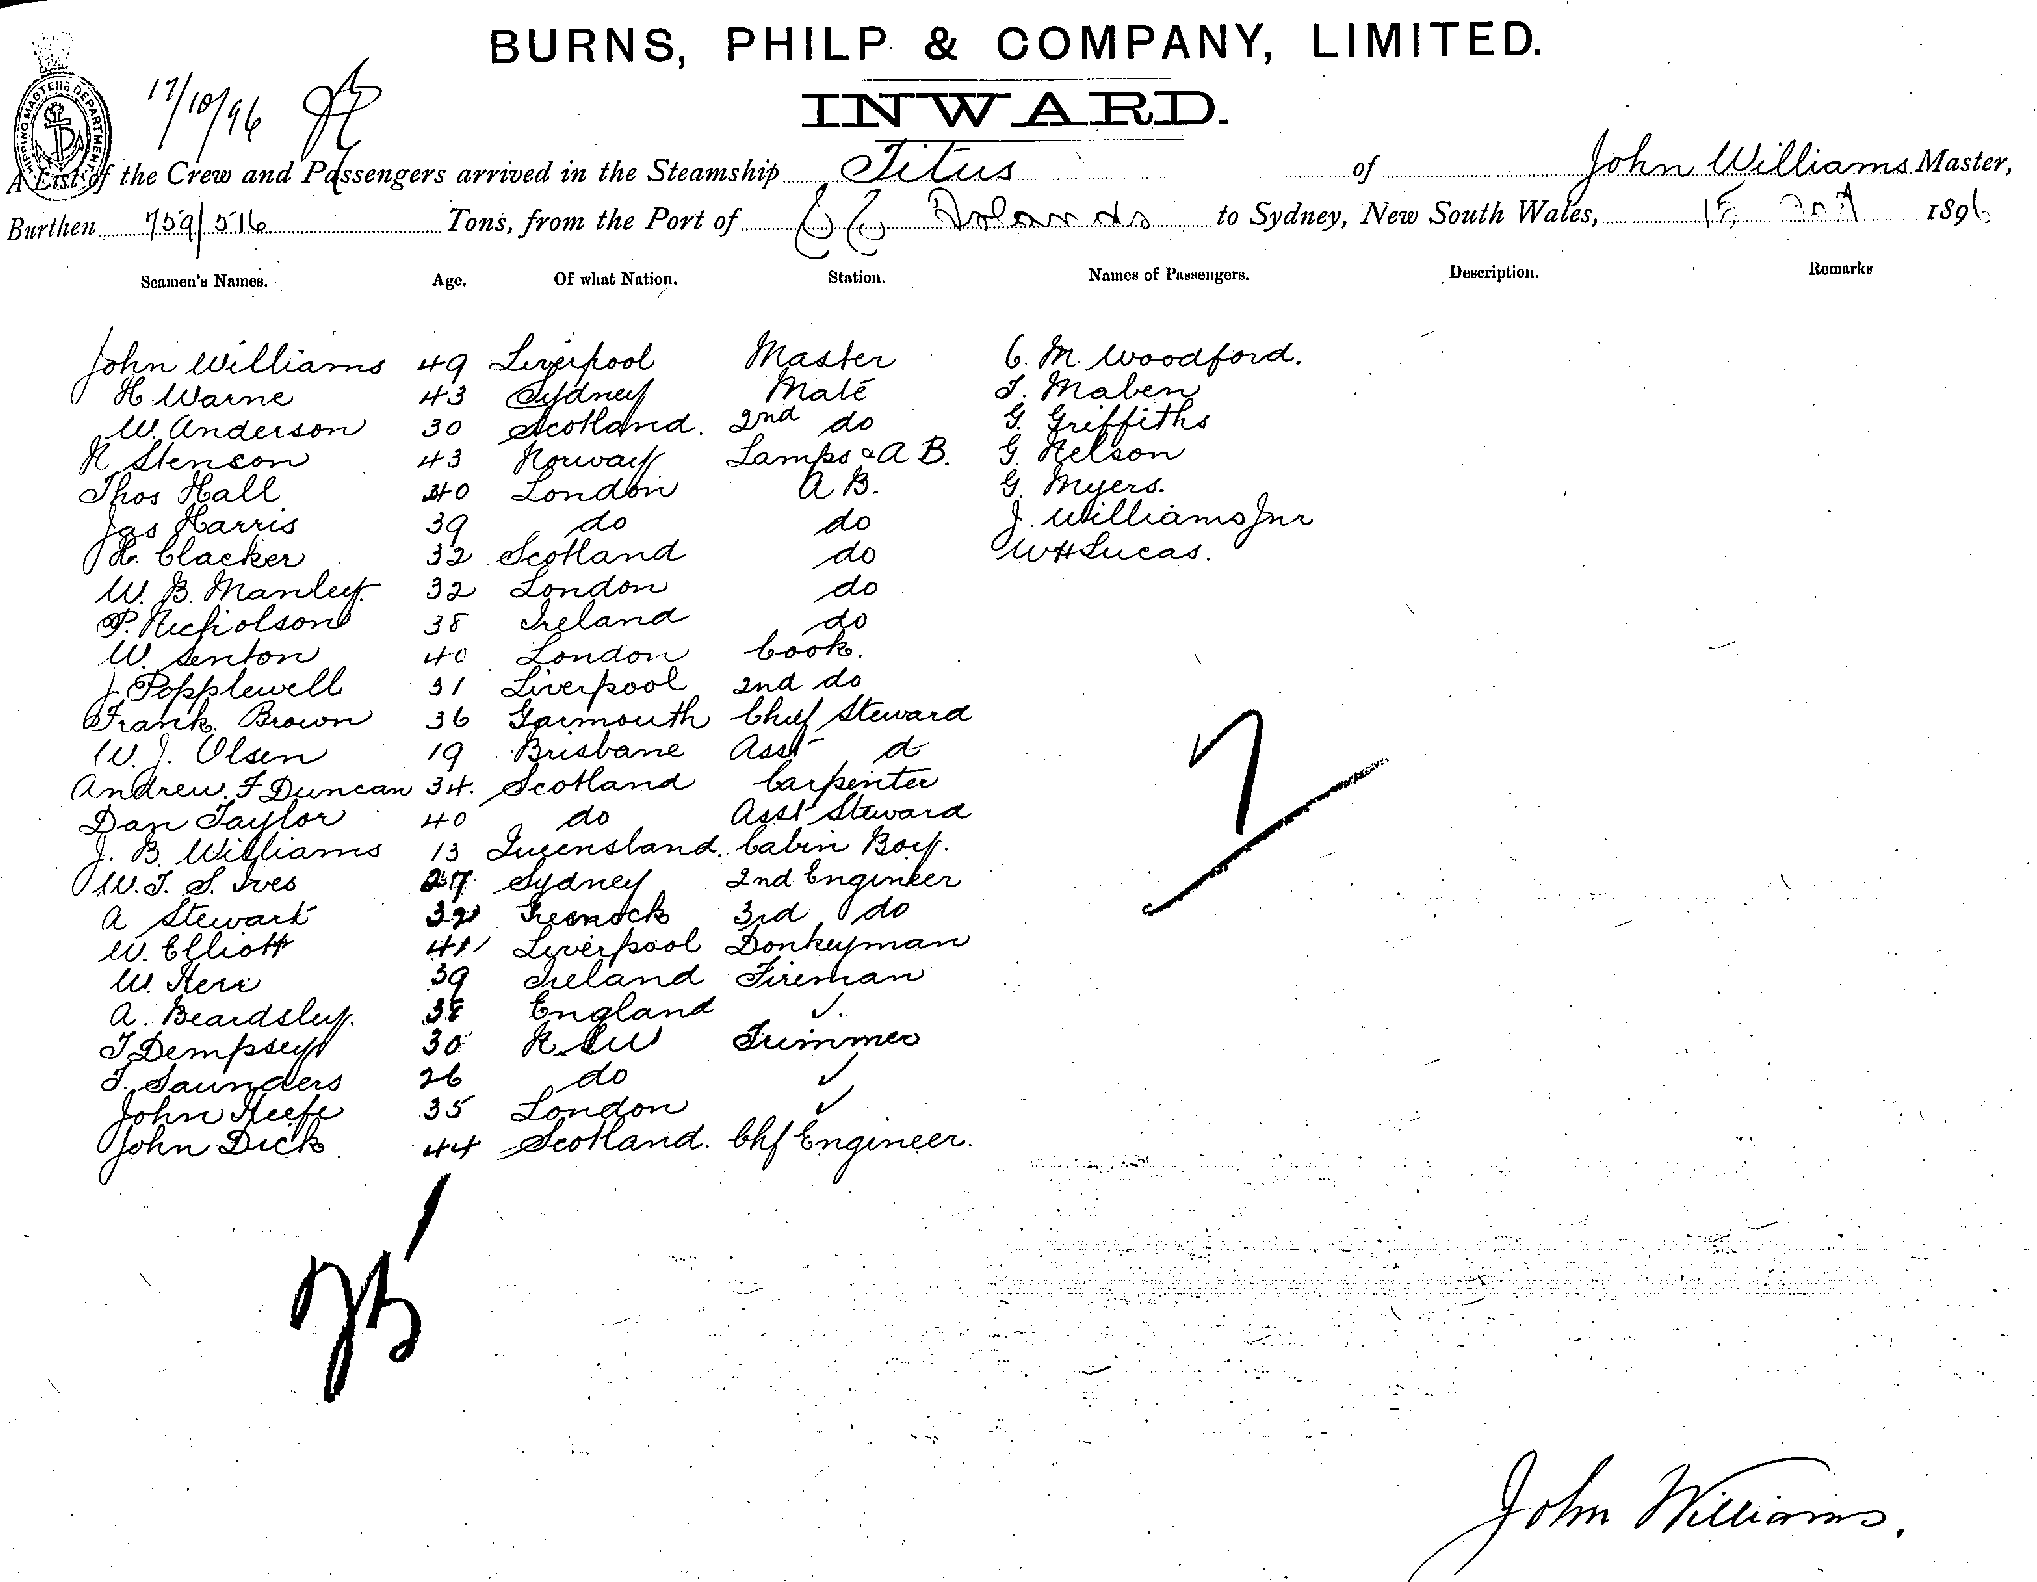 BURNS, PHILP & COMPANY, LIMITED.
INWARD.
SHIPPING MASTERS DEPARTMENT
17/10/96
A List of the Crew and Passengers arrived in the Steamship Titus of John Williams Master,
Burthen 759/516 Tons, from the Port of Islands to Sydney, New South Wales, 1896
Seamen's Names. Age. Of what Nation. Station. Names of Passengers. Description. Remarks
John Williams 49 Liverpool Master C. M. Woodford.
H Warne 43 Sydney Mate T. Maben
W. Anderson 30 Scotland. 2nd do G. Griffiths
N Stenson 43 Norway Lamps & A B. G. Nelson
Thos Hall 40 London A B. G. Myers.
Jas Harris 39 do do J. Williams Jnr
H. Clacker 32 Scotland do W H Lucas.
W. B. Manley. 32 London do
P. Nicholson 38 Ireland do
W. Senton 40 London Cook.
J. Popplewell 31 Liverpool 2nd do
Frank Brown 36 Yarmouth Chief Steward
W. J. Olsen 19 Brisbane Asst d
Andrew. F Duncan 34. Scotland Carpenter
Dan Taylor 40 do Asst Steward
J. B. Williams 13 Queensland. Cabin Boy.
W. T. S. Ives 27 Sydney 2nd Engineer
A Stewart 32 Greenock 3rd do
W. Elliott 41 Liverpool Donkeyman
W. Kerr 39 Ireland Fireman
A. Beardsley. 38 England ✓.
T Dempsey 30 N. S W Trimmer
T. Saunders 26 do ✓
John Keefe 35 London ✓
John Dick 44 Scotland. Chf Engineer.
7
25
John Williams.